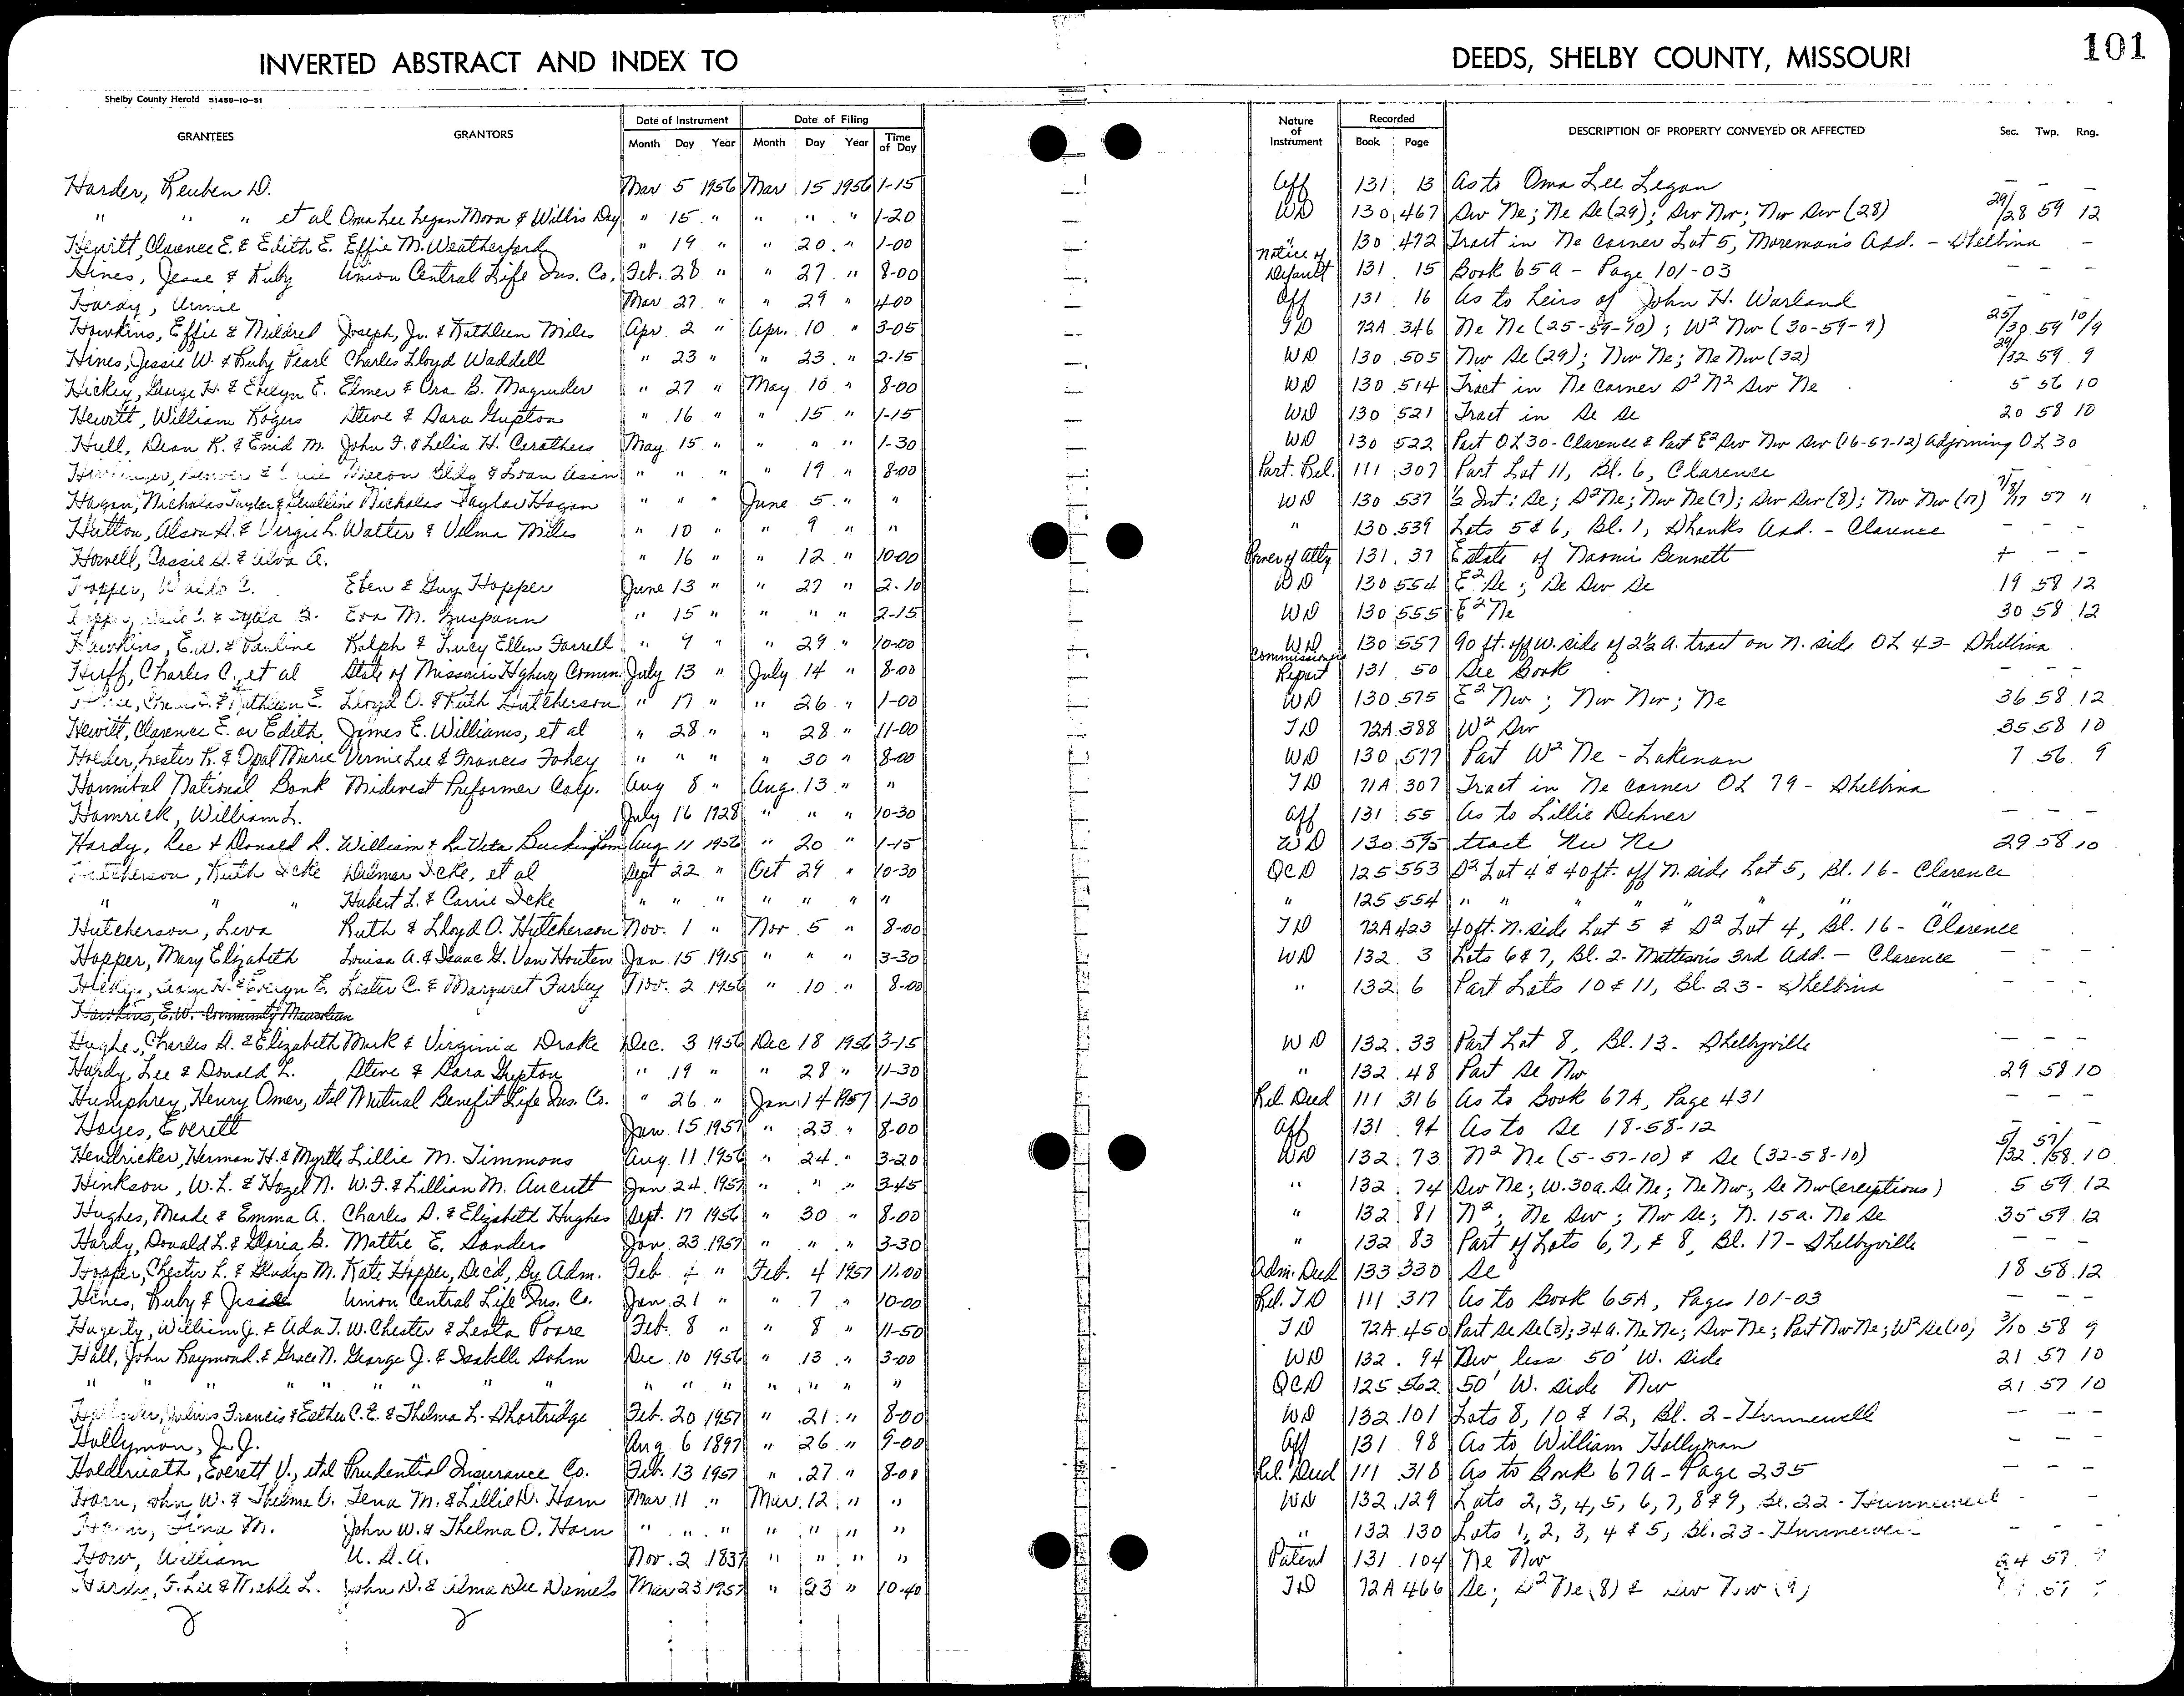 INVERTED ABSTRACT AND INDEX TO DEEDS, SHELBY COUNTY, MISSOURI 101
Shelby County Herald 51458-10-51
GRANTEES GRANTORS Date of Instrument Month Day Year Date of Filing Month Day Year Time of Day Nature of Instrument Recorded Book Page DESCRIPTION OF PROPERTY CONVEYED OR AFFECTED Sec. Twp. Rng.
Harder, Reuben D. Mar 5 1956 Mar 15 1956 1-15 Aff 131 13 As to Oma Lee Legan — — —
" " " et al Oma Lee Legan Moon & Willis Day " 15 " " " " 1-20 WD 130 467 Sw Ne; Ne Se (29); Sw Nw; Nw Sw (28) 29/28 59 12
Hewitt, Clarence E. & Edith E. Effie M. Weatherford " 19 " " 20 " 1-00 " 130 472 Tract in Ne corner Lot 5, Moreman's Add. - Shelbina —
Hines, Jesse & Ruby Union Central Life Ins. Co. Feb. 28 " " 27 " 8-00 Notice of Default 131 15 Book 65A - Page 101-03 — — —
Hardy, Annie Mar 27 " " 29 " 4-00 Aff 131 16 As to heirs of John H. Warland — — —
Hawkins, Effie & Mildred Joseph, Jr. & Kathleen Miles Apr. 2 " Apr. 10 " 3-05 TD 72A 346 Ne Ne (25-59-10); W² Nw (30-59-9) 25/30 59 10/9
Hines, Jessie W. & Ruby Pearl Charles Lloyd Waddell " 23 " " 23 " 2-15 WD 130 505 Nw Se (29); Nw Ne; Ne Nw (32) 29/32 59 9
Hickey, George H. & Evelyn E. Elmer & Ora B. Magruder " 27 " May 10 " 8-00 WD 130 514 Tract in Ne corner S² N² Sw Ne 5 56 10
Hewitt, William Rogers Steve & Sara Gupton " 16 " " 15 " 1-15 WD 130 521 Tract in Se Se 20 58 10
Hull, Dean R. & Enid M. John F. & Lelia H. Carothers May 15 " " " " 1-30 WD 130 522 Part OL 30 - Clarence & Part E² Sw Nw Sw (16-57-12) adjoining OL 30
Macon Bldg & Loan Assn " " " " 19 " 8-00 Part. Rel. 111 307 Part Lot 11, Bl. 6, Clarence
Hagan, Nicholas Taylor & Geraldine Nicholas Taylor Hagan " " " June 5 " " WD 130 537 ½ Int: Se; S² Ne; Nw Ne (7); Sw Sw (8); Nw Nw (17) 7/8/17 57 "
Hutton, Alson H. & Vergie L. Walter & Velma Miles " 10 " " 9 " " " 130 539 Lots 5 & 6, Bl. 1, Shanks Add. - Clarence — — —
Howell, Cassie D. & Alva A. " 16 " " 12 " 10-00 Power of Atty 131 37 Estate of Naomi Bennett + — —
Hopper, Waldo C. Eben & Guy Hopper June 13 " " 27 " 2-10 WD 130 554 E² Se; Se Sw Se 19 58 12
Eva M. Zuspann " 15 " " " " 2-15 WD 130 555 E² Ne 30 58 12
Hawkins, E.W. & Pauline Ralph & Lucy Ellen Farrell " 9 " " 29 " 10-00 WD 130 557 90 ft. off W. side of 2½ a. tract on N. side OL 43- Shelbina
Huff, Charles C., et al State of Missouri Highway Comm. July 13 " July 14 " 8-00 Commissioners Report 131 50 See Book — — —
Lloyd O. & Ruth Hutcherson " 17 " " 26 " 1-00 WD 130 575 E² Nw; Nw Nw; Ne 36 58 12
Hewitt, Clarence E. or Edith James E. Williams, et al " 28 " " 28 " 11-00 TD 72A 388 W² Sw 35 58 10
Holder, Lester R. & Opal Marie Vernie Lee & Frances Fohey " " " " 30 " 8-00 WD 130 577 Part W² Ne - Lakenan 7 56 9
Hannibal National Bank Midwest Preformer Corp. Aug 8 " Aug. 13 " " TD 71A 307 Tract in Ne corner OL 79 - Shelbina
Hamrick, William L. July 16 1928 " " " 10-30 Aff 131 55 As to Lillie Dehner — — —
Hardy, Lee & Donald L. William & LaVeta Buckingham Aug 11 1956 " 20 " 1-15 WD 130 595 tract Nw Ne 29 58 10
Hutcherson, Ruth Icke Delmar Icke, et al Sept 22 " Oct 29 " 10-30 QCD 125 553 S² Lot 4 & 40 ft. off N. side Lot 5, Bl. 16 - Clarence
" " " Hubert L. & Carrie Icke " " " " " " " " 125 554 " " " " " " "
Hutcherson, Leva Ruth & Lloyd O. Hutcherson Nov. 1 " Nov 5 " 8-00 TD 72A 423 40 ft. N. side Lot 5 & S² Lot 4, Bl. 16 - Clarence
Hopper, Mary Elizabeth Louisa A. & Isaac G. Van Houten Jan 15 1915 " " " 3-30 WD 132 3 Lots 6 & 7, Bl. 2- Mattison's 3rd Add. - Clarence — — —
Lester C. & Margaret Farley Nov. 2 1956 " 10 " 8-00 " 132 6 Part Lots 10 & 11, Bl. 23 - Shelbina — — —
Hawkins, E.W. Community Mausoleum
Hughe, Charles D. & Elizabeth Mark & Virginia Drake Dec. 3 1956 Dec 18 1956 3-15 WD 132 33 Part Lot 8, Bl. 13 - Shelbyville — — —
Hardy, Lee & Donald L. Steve & Sara Gupton " 19 " " 28 " 11-30 " 132 48 Part Se Nw 29 58 10
Humphrey, Henry Omer, et al Mutual Benefit Life Ins. Co. " 26 " Jan 14 1957 1-30 Rel. Deed 111 316 As to Book 67A, Page 431 — — —
Hayes, Everett Jan 15 1957 " 23 " 8-00 Aff 131 94 As to Se 18-58-12 — — —
Hendricker, Herman H. & Myrtle Lillie M. Timmons Aug 11 1956 " 24 " 3-20 WD 132 73 N² Ne (5-57-10) & Se (32-58-10) 5/32 57/58 10
Hinkson, W.L. & Hazel N. W.F. & Lillian M. Aucutt Jan 24 1957 " " " 3-45 " 132 74 Sw Ne; W. 30a. Se Ne; Ne Nw; Se Nw (exceptions) 5 59 12
Hughes, Meade & Emma A. Charles D. & Elizabeth Hughes Sept. 17 1956 " 30 " 8-00 " 132 81 N²; Ne Sw; Nw Se; N. 15a. Ne Se 35 59 12
Hardy, Donald L. & Gloria B. Mattie E. Sanders Jan 23 1957 " " " 3-30 " 132 83 Part of Lots 6, 7, & 8, Bl. 17 - Shelbyville — — —
Hopper, Chester L. & Gladys M. Kate Hopper, Dec'd, By Adm. Feb " Feb. 4 1957 11-00 Adm. Deed 133 330 Se 18 58 12
Hines, Ruby & Jessie Union Central Life Ins. Co. Jan 21 " " 7 " 10-00 Rel. TD 111 317 As to Book 65A, Pages 101-03 — — —
Hagerty, William J. & Ada T. W. Chester & Leota Poore Feb. 8 " " 8 " 11-50 TD 72A 450 Part Se Se (3); 34a. Ne Ne; Sw Ne; Part Nw Ne; W² Se (10) 3/10 58 9
Hall, John Raymond & Grace N. George J. & Isabelle Sohm Dec 10 1956 " 13 " 3-00 WD 132 94 Nw less 50' W. side 21 57 10
" " " " " " " " " " " " " " " " QCD 125 562 50' W. side Nw 21 57 10
Julius Francis & Esther C.E. & Thelma L. Shortridge Feb. 20 1957 " 21 " 8-00 WD 132 101 Lots 8, 10 & 12, Bl. 2 - Hunnewell — — —
Hollyman, J.J. Aug 6 1897 " 26 " 9-00 Aff 131 98 As to William Hollyman — — —
Holdereath, Everett V., et al Prudential Insurance Co. Feb. 13 1957 " 27 " 8-00 Rel. Deed 111 318 As to Book 67A - Page 235 — — —
Horn, John W. & Thelma O. Lena M. & Lillie D. Horn Mar. 11 " Mar. 12 " " WD 132 129 Lots 2, 3, 4, 5, 6, 7, 8 & 9, Bl. 22 - Hunnewell — —
John W. & Thelma O. Horn " " " " " " " " 132 130 Lots 1, 2, 3, 4 & 5, Bl. 23 - Hunnewell — — —
How, William U.S.A. Nov. 2 1837 " " " " Patent 131 104 Ne Nw 24 57 9
John D. & Alma Dee Daniels Mar 23 1957 " 23 " 10-40 TD 72A 466 Se; S² Ne (8) & Sw Nw (9) 57